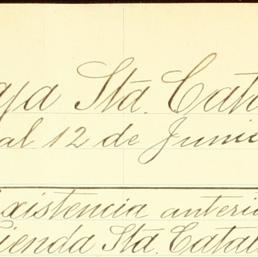 aja Sta. Cata
al 12 de Juni
Existencia anteri
cienda Sta. Catal